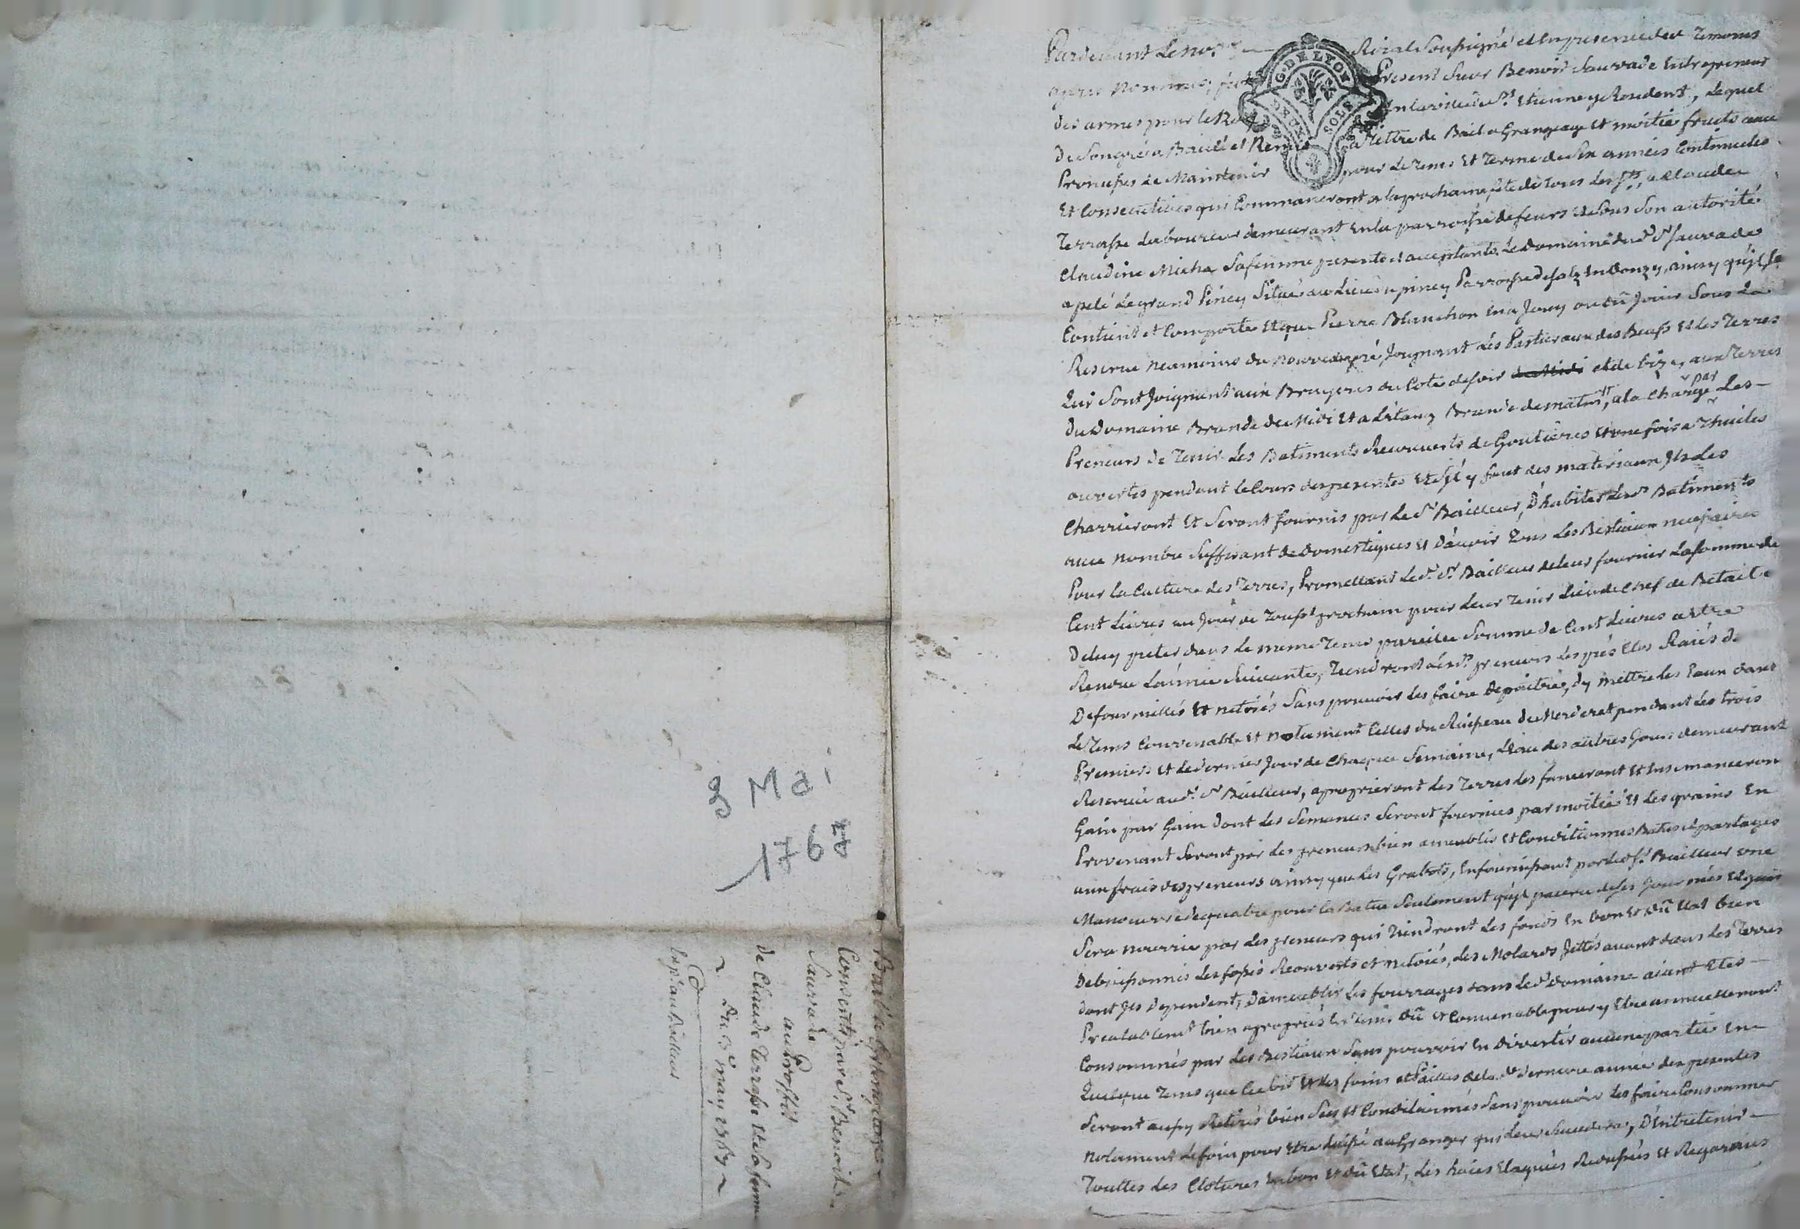 3 Mai
1767
Bail à Grangeage
Consenti par Sr. Benoit
Sauvade
au Proffit
de Claude Terrasse et sa femme
Du 3 may 1767
Exp. au Bailleur
G. DE LYON
DEUX SOLS
Pardevant Le Nore. Roial Soussigné et En presence des Temoins
apres Nommés, fut Present Sieur Benoit Sauvade Entrepreneur
des armes pour le Roy En la ville de St. Etienne y Resident, Lequel
De Son gré a Baillé et Remis a Tittre de Bail a Grangeage Et moitié fruits avec
Promesses de Maintenir pour Le Tems Et Terme de Six années Continuelles
Et Consecutives qui Commanceront a la prochaine fete de Tous les Sts, a Claude
Terrasse Laboureur demeurant En la parroisse de feurs et de Sous Son autorité
Claudine Micha Sa femme presente et acceptante Le Domaine dud. Sr. Sauvade
apelé Le grand Pincy Situé au Lieu de pincy Parroisse de Salt En Donzy, ainsy qu'il Se
Contient et Comporte Et que Pierre Blanchon En a Jouy ou dû Jouir Sous La
Reserve Neamoins du Nouveau pré Joignant Les Pasturaux des Bœufs Et des Terres
Qui Sont Joignant aux Bruyeres du Coté de soir et de bize, aux Terres
Du Domaine Brande de Midi Et a L'étang Brande de matin, a la Charge par Les
Preneurs de Tenir Les Batiments Recouverts de Goutieres Et une fois a Thuiles
ouvertes pendant le Cours des presentes Et S'il y faut des materiaux Ils Les
Charrieront Et Seront fournis par Le Sr. Bailleur, D'habiter Lesd. Batiments
avec nombre Suffisant de Domestiques Et D'avoir Tous Les Bestiaux necessaires
Pour La Culture des Terres, Promettant Led. Sr. Bailleur de leur fournir La Somme de
Cent Livres au Jour de Touss. prochain pour Leur Tenir Lieu de Chef de Betail Et
De luy preter dans Le meme Tems pareille Somme de Cent Livres a Etre
Rendue L'année Suivante, Tiendront Lesd. preneurs Les prés Clos Raiés
De fourmilles Et netoiés Sans pouvoir Les faire depaitre, D'y mettre les Eaux dans
Le Tems Convenable Et Notament Celles du Ruisseau du Merderet pendant Les trois
Premiers Et Le dernier Jour de Chaque Semaine, L'eau des autres Jours demeurant
Reservée aud. Sr. Bailleur, aproprieront Les Terres Les fumeront Et Ensemanceront
Gain par Gain dont Les Semences Seront fournies par moitié Et Les grains En
Provenant Seront par Les preneurs bien ameublis Et Conditionnés Batus et partagés
aux frais des preneurs ainsy que Les Grabots, En fournissant par Led. Sr. Bailleur une
Manœuvre de quatre pour la Batue Seulement qu'il paiera de Ses Journées Et qui
Sera nourrie par Les preneurs qui Tiendront Les fonds En bon Et dû Etat bien
Debuissonnés Les fossés Recouverts et Netoiés, Les Molards Jettés avant dans Les Terres
dont Ils dependent, D'ameublir Les fourrages dans Led. Domaine aiant Etés
Prealablemt. bien apropriés En Tems dû Et Convenable pour y Etre annuellement
Consommés par Les Bestiaux Sans pouvoir En Divertir aucune partie En
Quelque Tems que Ce Soit Et Les foins et Pailles de la derniere année des presentes
Seront aussy Retirés bien Secs Et Conditionnés Sans pouvoir Les faire Consommer
Notament Le foin pour Etre Laissé au Granger qui Leur Succedera, D'Entretenir
Touttes Les Clotures En bon Et dû Etat, Les haies Elaguées Et